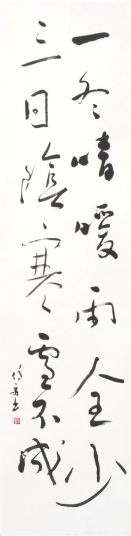 一冬晴暖雨全少
三日陰寒雪不成